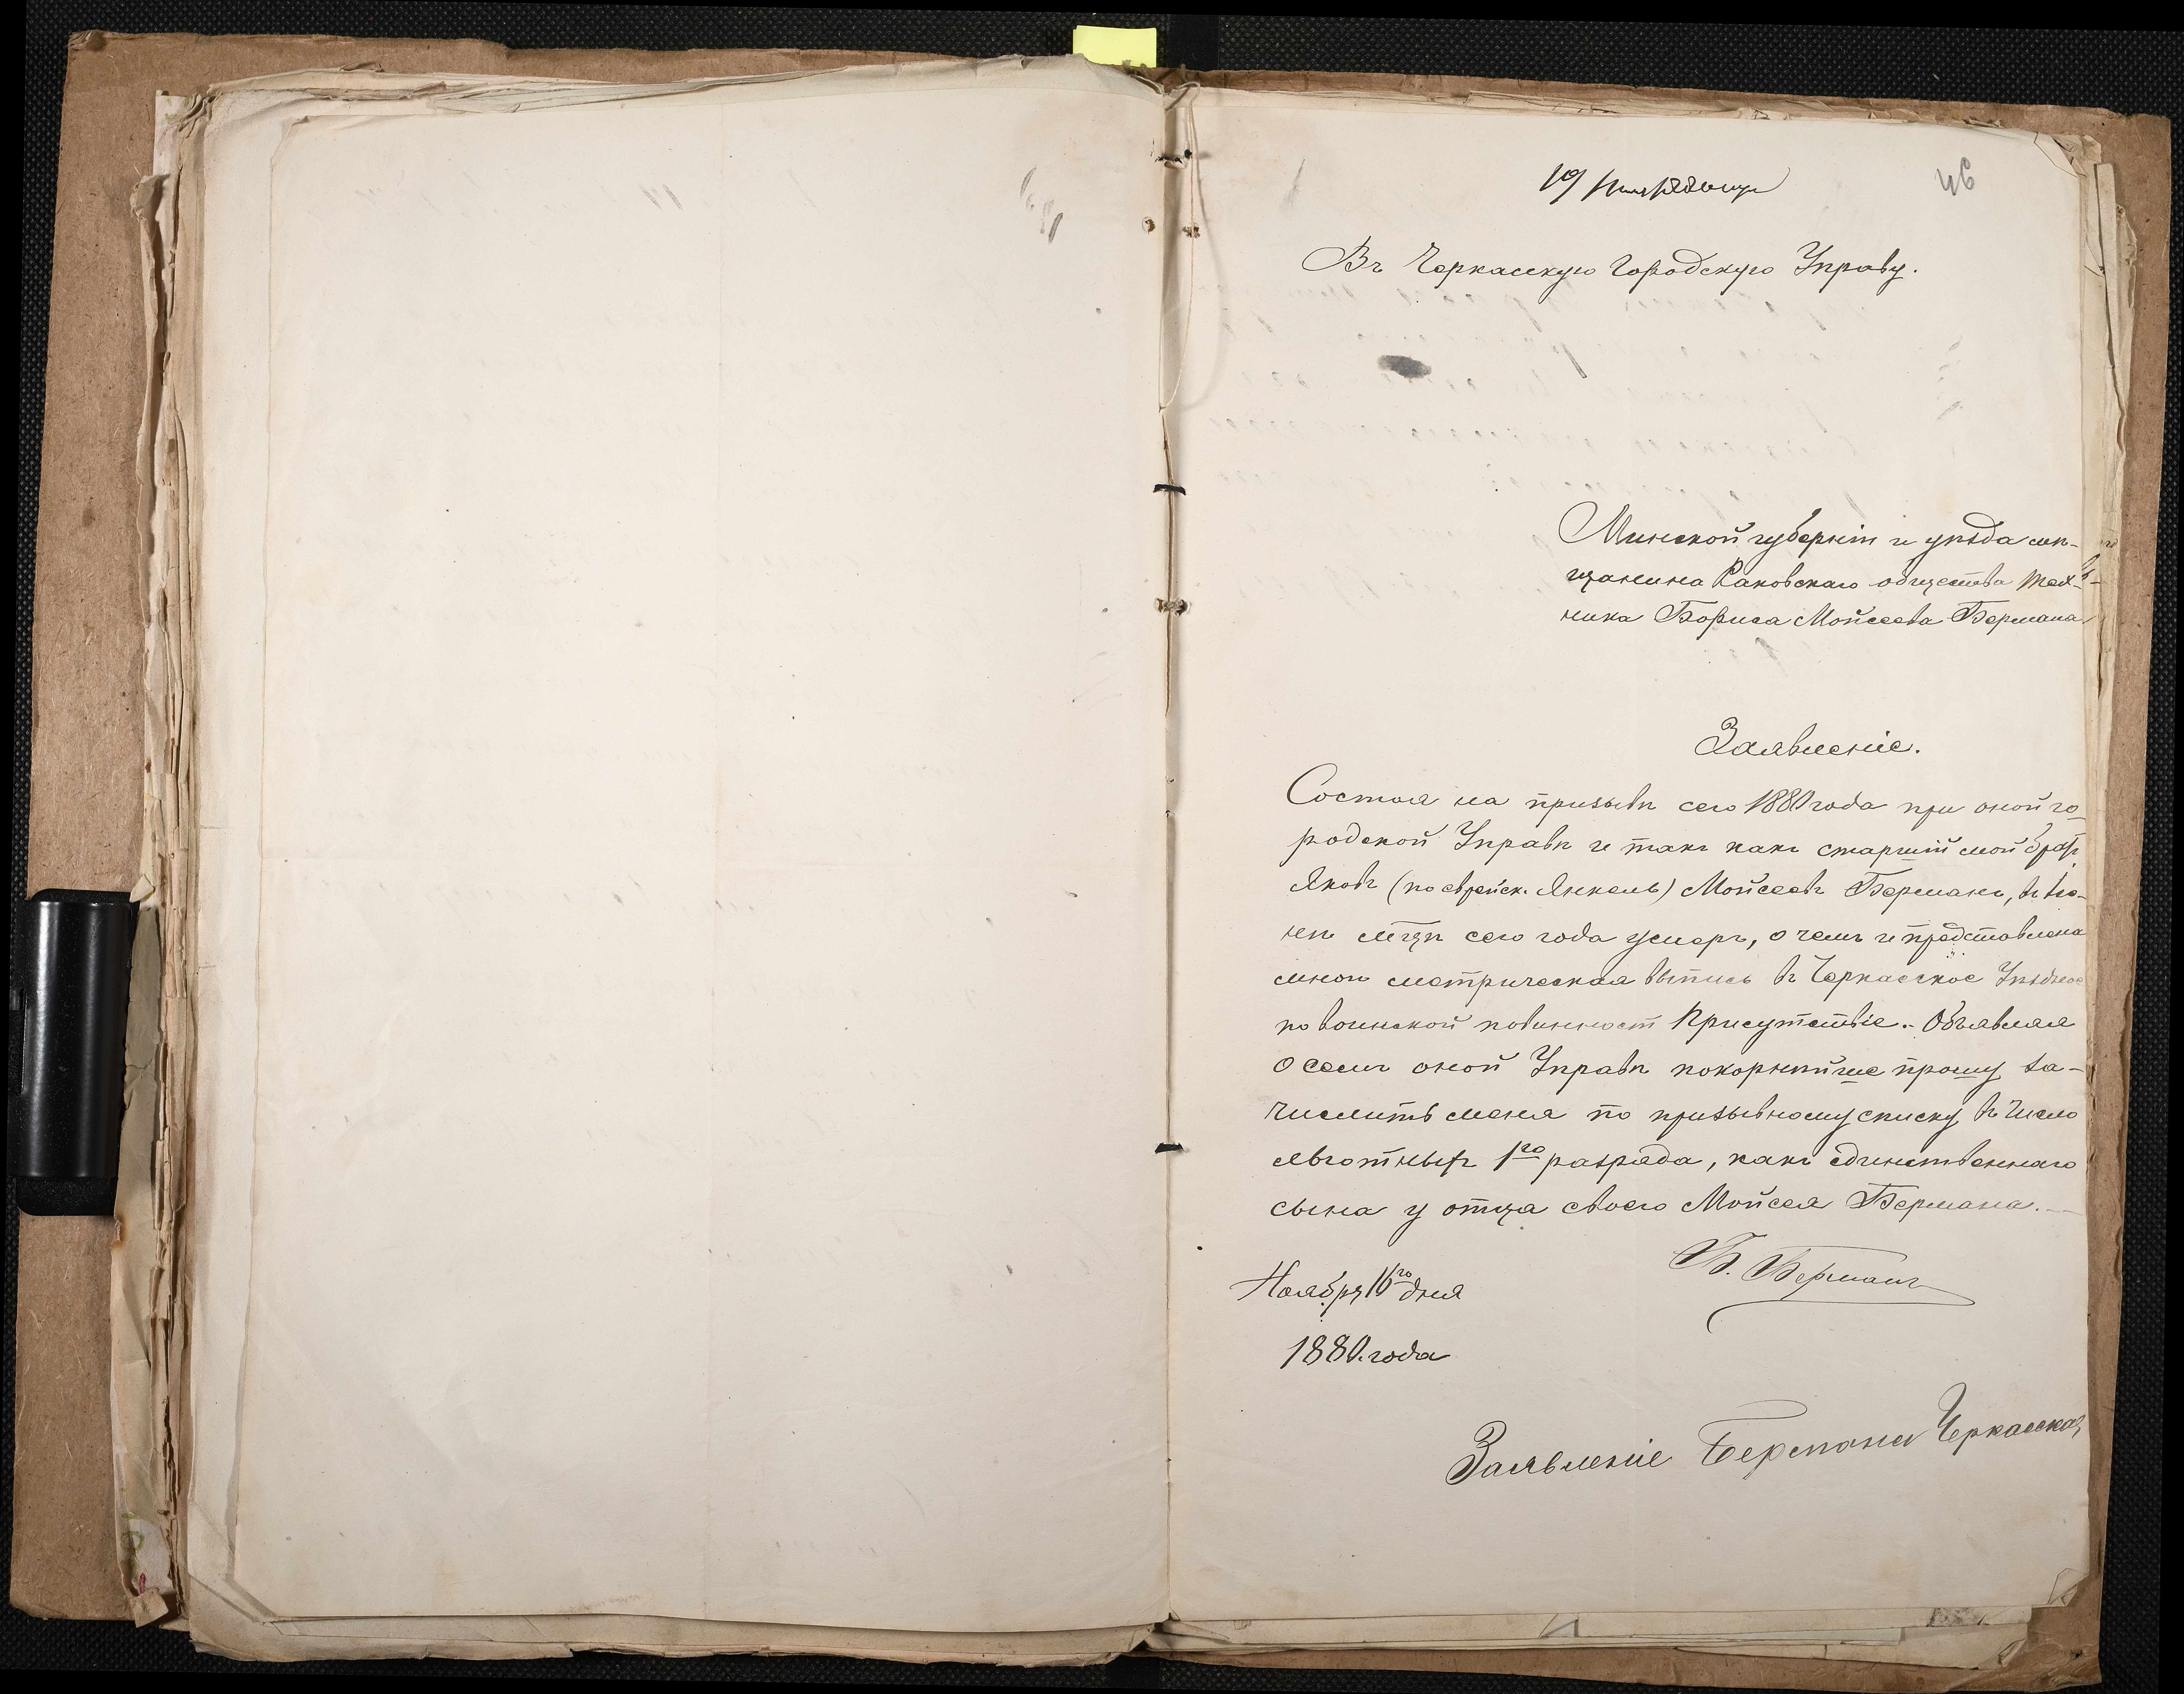 19 Ноября 1880 года
46
Въ Черкасскую Городскую Управу.
Минской губерніи и уѣзда мѣ-
щанина Раковскаго общества Тех-
ника Бориса Мойсеева Бермана
Заявленіе.
Состоя на призывѣ сего 1880 года при оной го-
родской Управѣ и такъ какъ старшій мой братъ
Яковъ (по еврейск. Янкель) Мойсеевъ Берманъ, въ Iю-
нѣ м‑цѣ сего года умеръ, о чемъ и представлена
мною метрическая выпись въ Черкасское Уѣздное
по воинской повинност Присутствіе. - Объявляя
о семъ оной Управѣ покорнѣйше прошу за-
числить меня по призывному списку въ число
льготныхъ 1го разряда, какъ единственнаго
сына у отца своего Мойсея Бермана. —
Б. Берманъ
Ноября 16го дня
1880. года
Заявленіе Бермана Черкасская